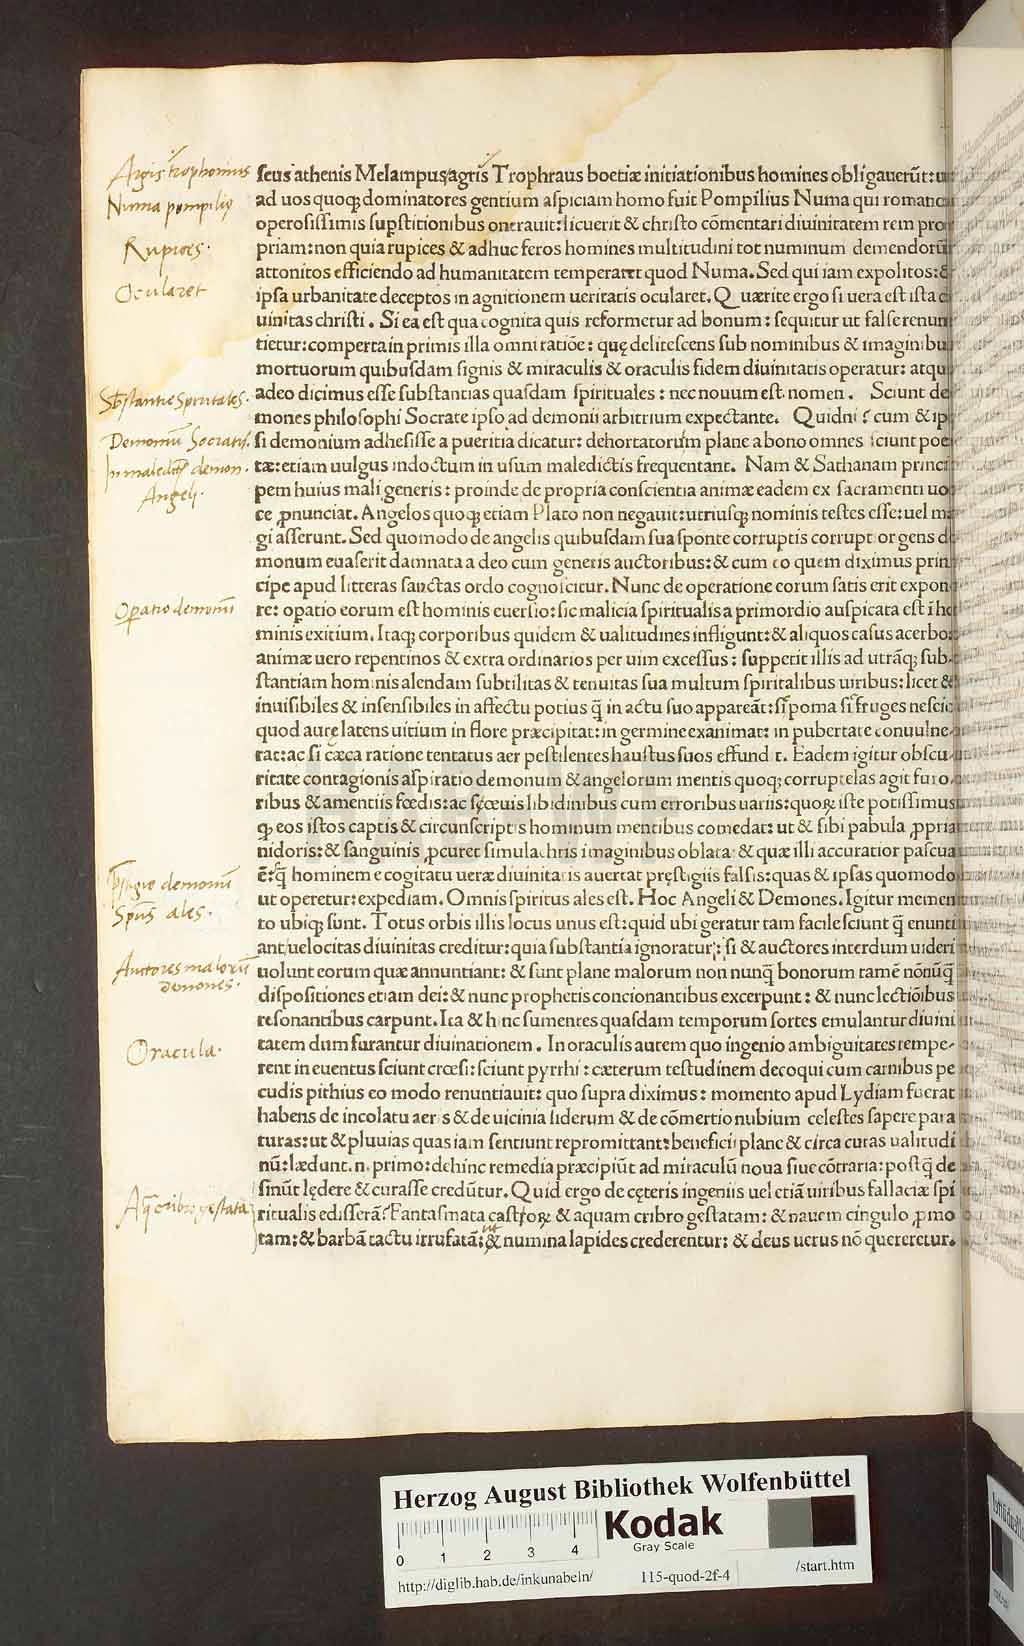 Argis trophonius
Numa pompiliꝰ
Rupices.
Ocularet
Sbstantie Spirutales.
Demoniũ Socratis.
In maledictꝭ demon.
Angeli.
Opatio demoniũ
demoniũ
Spũs ales.
Auctores malorũ
demones.
Oracula.
Aq̃ cribro gestata
seus athenis Melampus agris Trophraus boetiæ initiationibus homines obligauerũt: u
ad uos quoq; dominatores gentium aspiciam homo fuit Pompilius Numa qui romanc
operosissimis supstitionibus onerauit: licuerit & christo cõmentari diuinitatem rem pro
priam: non quia rupices & adhuc feros homines multitudini tot numinum demendorũ
attonitos efficiendo ad humanitatem temperaret quod Numa. Sed qui iam expolitos: &
ipsa urbanitate deceptos in agnitionem ueritatis ocularet. Quærite ergo si uera est ista
uinitas christi. Si ea est qua cognita quis reformetur ad bonum: sequitur ut false renun
tietur: comperta in primis illa omni ratiõe: quę delitescens sub nominibus & imaginibu
mortuorum quibusdam signis & miraculis & oraculis fidem diuinitatis operatur: atqu
adeo dicimus esse substantias quasdam spirituales: nec nouum est nomen. Sciunt de
mones philosophi Socrate ipso ad demonii arbitrium expectante. Quidni? cum & ip
si demonium adhesisse a pueritia dicatur: dehortatorum plane a bono omnes sciunt poe
tæ: etiam uulgus indoctum in usum maledictis frequentant. Nam & Sathanam princi
pem huius mali generis: proinde de propria conscientia animæ eadem ex sacramenti uo
ce ꝓnunciat. Angelos quoq; etiam Plato non negauit: utriusq; nominis testes esse: uel m
gi asserunt. Sed quomodo de angelis quibusdam sua sponte corruptis corruptior gens d
monum euaserit damnata a deo cum generis auctoribus: & cum eo quem diximus prin
cipe apud litteras sanctas ordo cognoscitur. Nunc de operatione eorum satis erit expon
re: opatio eorum est hominis euersio: sic malicia spiritualis a primordio auspicata est ĩ ho
minis exitium. Itaq; corporibus quidem & ualitudines infligunt: & aliquos casus acerbo:
animæ uero repentinos & extra ordinarios per uim excessus: suppetit illis ad utrãq; sub-
stantiam hominis alendam subtilitas & tenuitas sua multum spiritalibus uiribus: licet &
inuisibiles & insensibiles in affectu potius q̃ in actu suo appareãt: si poma si fruges nescio
quod aurę latens uitium in flore præcipitat: in germine exanimat: in pubertate conuulne-
rat: ac si cæca ratione tentatus aer pestilentes haustus suos effundit. Eadem igitur obscu-
ritate contagionis aspiratio demonum & angelorum mentis quoq; corruptelas agit furo-
ribus & amentiis fœdis: ac sęœuis libidinibus cum erroribus uariis: quoꝝ iste potissimus
q; eos istos captis & circunscriptis hominum mentibus comedat: ut & sibi pabula ꝓpria
nidoris: & sanguinis ꝓcuret simulachris imaginibus oblata: & quæ illi accuratior pascua
ẽ: q̃ hominem e cogitatu ueræ diuinitatis auertat pręstigiis falsis: quas & ipsas quomodo
ut operetur: expediam. Omnis spiritus ales est. Hoc Angeli & Demones. Igitur memen
to ubiq; sunt. Totus orbis illis locus unus est: quid ubi geratur tam facile sciunt q̃ enunti
ant: uelocitas diuinitas creditur: quia substantia ignoratur: si & auctores interdum uideri
uolunt eorum quæ annuntiant: & sunt plane malorum non nunq̃ bonorum tamẽ nõnũq̃
dispositiones etiam dei: & nunc prophetis concionantibus excerpunt: & nunc lectiõibus
resonantibus carpunt. Ita & hinc sumentes quasdam temporum sortes emulantur diuini
tatem dum furantur diuinationem. In oraculis autem quo ingenio ambiguitates tempe-
rent in euentus sciunt crœsi: sciunt pyrrhi: cæterum testudinem decoqui cum carnibus pe
cudis pithius eo modo renuntiauit: quo supra diximus: momento apud Lydiam fuerat
habens de incolatu aeris & de uicinia siderum & de cõmertio nubium celestes sapere para
turas: ut & pluuias quas iam sentiunt repromittant: benefici plane & circa curas ualitudi
nũ: lædunt. n. primo: dehinc remedia præcipiũt ad miraculũ noua siue cõtraria: postq̃ de
sinũt lędere & curasse credũtur. Quid ergo de cęteris ingeniis uel etiã uiribus fallaciæ spi
ritualis edisserã? Fantasmata castroꝝ & aquam cribro gestatam: & nauem cingulo ꝓmo
tam: & barbã tactu irrufatã: ut & numina lapides crederentur: & deus uerus nõ quereretur.
Herzog August Bibliothek Wolfenbüttel
Kodak
Gray Scale
0 1 2 3 4
http://diglib.hab.de/inkunabeln/ 115-quod-2f-4 /start.htm